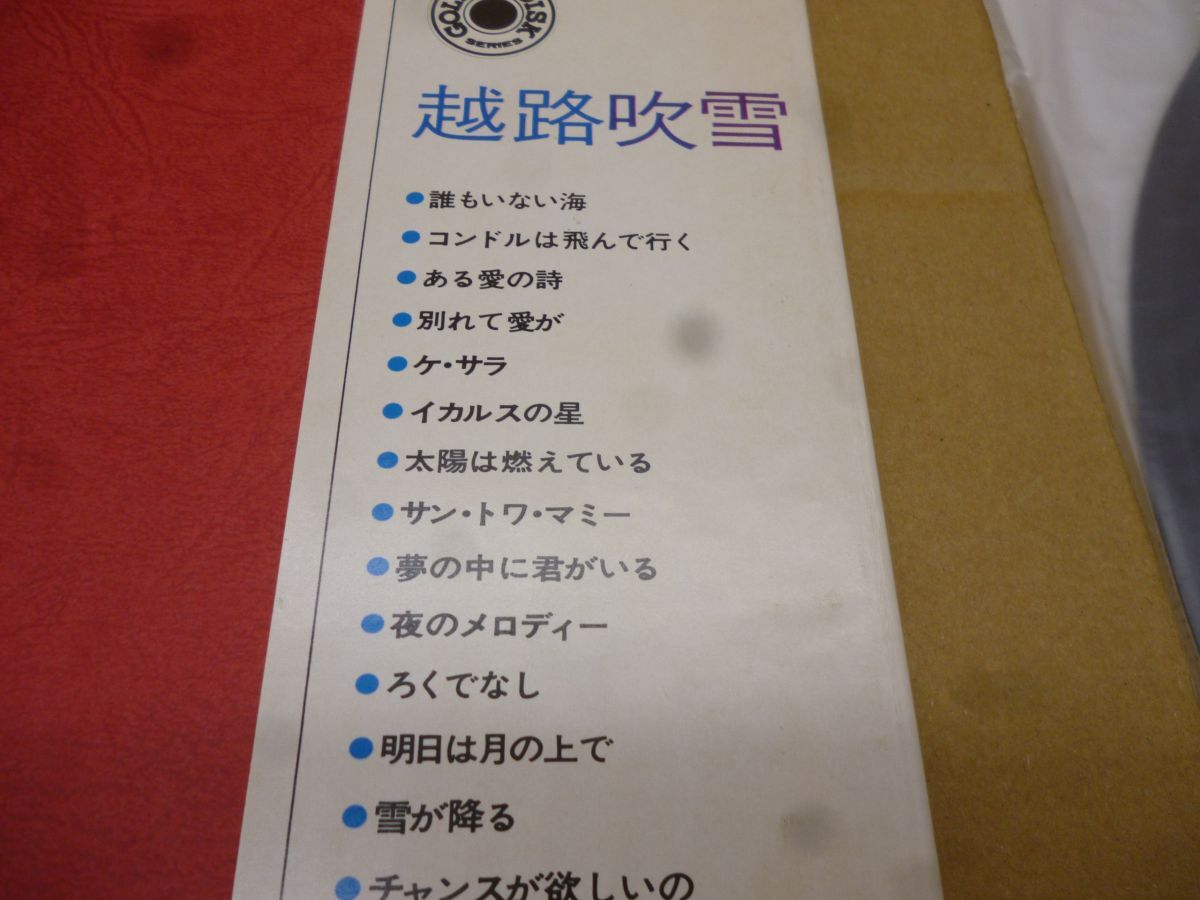 GOL DISK
SERIES
越路吹雪
●誰もいない海
●コンドルは飛んで行く
●ある愛の詩
●別れて愛が
●ケ・サラ
●イカルスの星
●太陽は燃えている
●サン・トワ・マミー
●夢の中に君がいる
●夜のメロディー
●ろくでなし
●明日は月の上で
●雪が降る
●チャンスが欲しいの